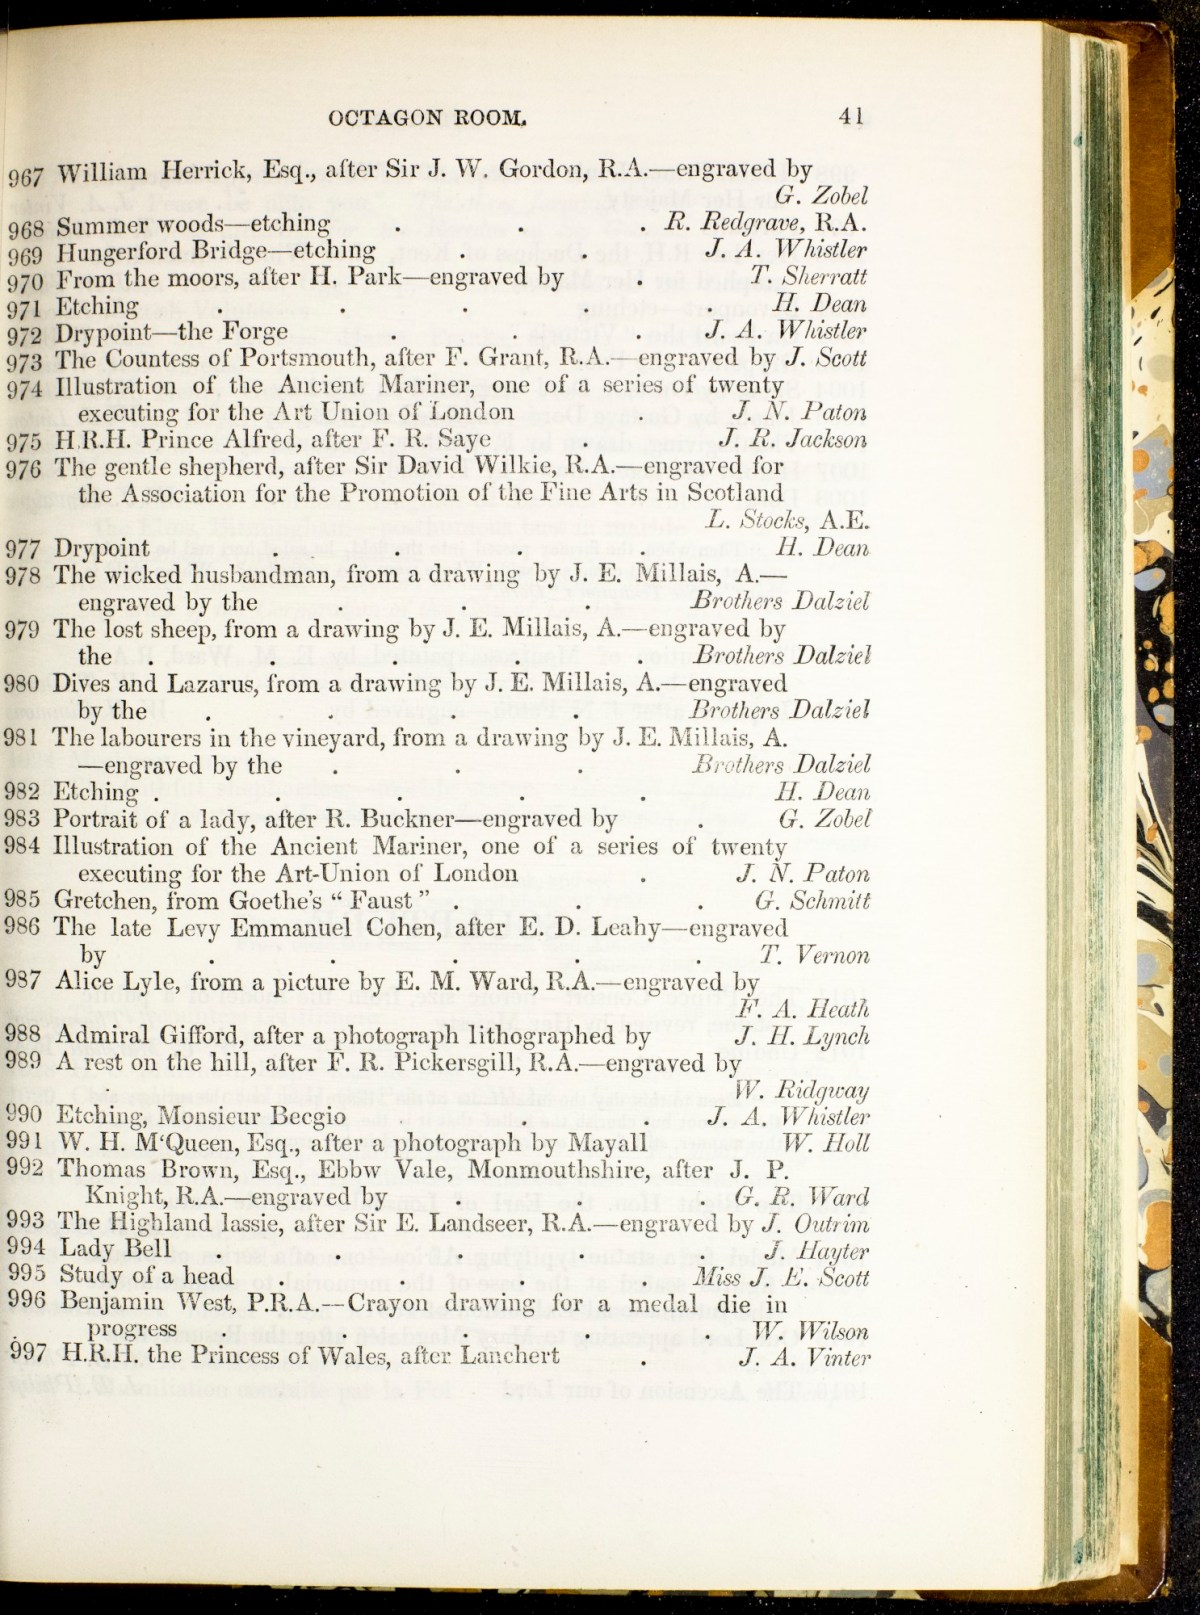 OCTAGON ROOM. 41
967 William Herrick, Esq., after Sir J. W. Gordon, R.A.—engraved by
G. Zobel
968 Summer woods—etching . . . R. Redgrave, R.A.
969 Hungerford Bridge—etching . . J. A. Whistler
970 From the moors, after H. Park—engraved by . T. Sherratt
971 Etching . . . . . H. Dean
972 Drypoint—the Forge . . . J. A. Whistler
973 The Countess of Portsmouth, after F. Grant, R.A.—engraved by J. Scott
974 Illustration of the Ancient Mariner, one of a series of twenty
executing for the Art Union of London . J. N. Paton
975 H.R.H. Prince Alfred, after F. R. Saye . J. R. Jackson
976 The gentle shepherd, after Sir David Wilkie, R.A.—engraved for
the Association for the Promotion of the Fine Arts in Scotland
L. Stocks, A.E.
977 Drypoint . . . . H. Dean
978 The wicked husbandman, from a drawing by J. E. Millais, A.—
engraved by the . . . Brothers Dalziel
979 The lost sheep, from a drawing by J. E. Millais, A.—engraved by
the . . . . . Brothers Dalziel
980 Dives and Lazarus, from a drawing by J. E. Millais, A.—engraved
by the . . . . Brothers Dalziel
981 The labourers in the vineyard, from a drawing by J. E. Millais, A.
—engraved by the . . . Brothers Dalziel
982 Etching . . . . . H. Dean
983 Portrait of a lady, after R. Buckner—engraved by . G. Zobel
984 Illustration of the Ancient Mariner, one of a series of twenty
executing for the Art-Union of London . J. N. Paton
985 Gretchen, from Goethe's “ Faust ” . . . G. Schmitt
986 The late Levy Emmanuel Cohen, after E. D. Leahy—engraved
by . . . . . T. Vernon
987 Alice Lyle, from a picture by E. M. Ward, R.A.—engraved by
F. A. Heath
988 Admiral Gifford, after a photograph lithographed by J. H. Lynch
989 A rest on the hill, after F. R. Pickersgill, R.A.—engraved by
W. Ridgway
990 Etching, Monsieur Becgio . . . J. A. Whistler
991 W. H. M‘Queen, Esq., after a photograph by Mayall W. Holl
992 Thomas Brown, Esq., Ebbw Vale, Monmouthshire, after J. P.
Knight, R.A.—engraved by . . . G. R. Ward
993 The Highland lassie, after Sir E. Landseer, R.A.—engraved by J. Outrim
994 Lady Bell . . . . . J. Hayter
995 Study of a head . . . Miss J. E. Scott
996 Benjamin West, P.R.A.—Crayon drawing for a medal die in
progress . . . . . W. Wilson
997 H.R.H. the Princess of Wales, after Lanchert . J. A. Vinter